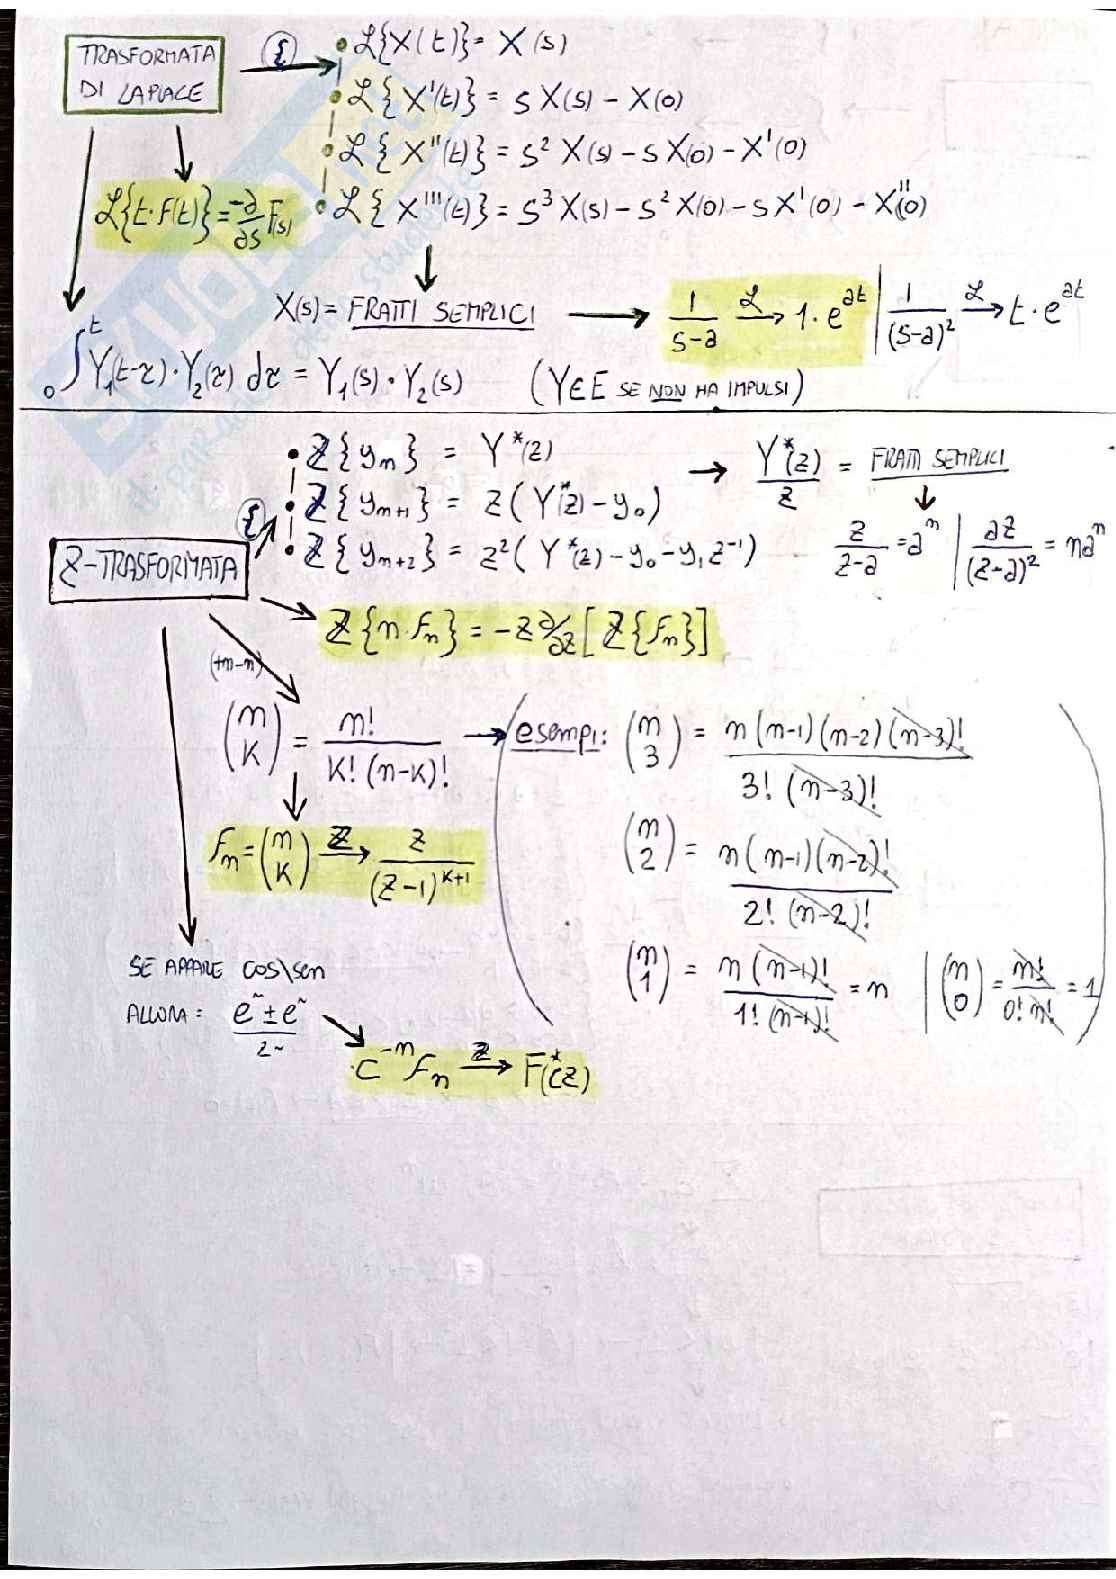 TRASFORMATA
DI LAPLACE
{
• ℒ{X(t)} = X(s)
• ℒ{X'(t)} = s X(s) - X(0)
• ℒ{X''(t)} = s² X(s) - s X(0) - X'(0)
• ℒ{X'''(t)} = s³ X(s) - s² X(0) - s X'(0) - X''(0)
ℒ{t·F(t)} = -∂/∂s F(s)
X(s) = FRATTI SEMPLICI → 1/(s-a) ℒ→ 1·e^{at} | 1/(s-a)² ℒ→ t·e^{at}
₀∫^t Y₁(t-τ)·Y₂(τ) dτ = Y₁(s)·Y₂(s) (Y∈E SE NON HA IMPULSI)
Z-TRASFORMATA
{
• Z{y_n} = Y*(z) → Y*(z)/z = FRATTI SEMPLICI
• Z{y_{n+1}} = z(Y*(z) - y₀)
• Z{y_{n+2}} = z²(Y*(z) - y₀ - y₁z⁻¹)
z/(z-a) = a^n | az/(z-a)² = na^n
Z{n·F_n} = -z ∂/∂z [Z{F_n}]
(+n-n)
(n K) = n!/(K!(n-K)!) → esempi: (n 3) = n(n-1)(n-2)(n-3)!/(3!(n-3)!)
F_n = (n K) Z→ z/(z-1)^{K+1}
(n 2) = n(n-1)(n-2)!/(2!(n-2)!)
(n 1) = n(n-1)!/(1!(n-1)!) = n | (n 0) = n!/(0! n!) = 1
SE APPARE cos\sen
ALLORA = (e^~ ± e^~)/2~
C^{-n} F_n Z→ F*(cz)